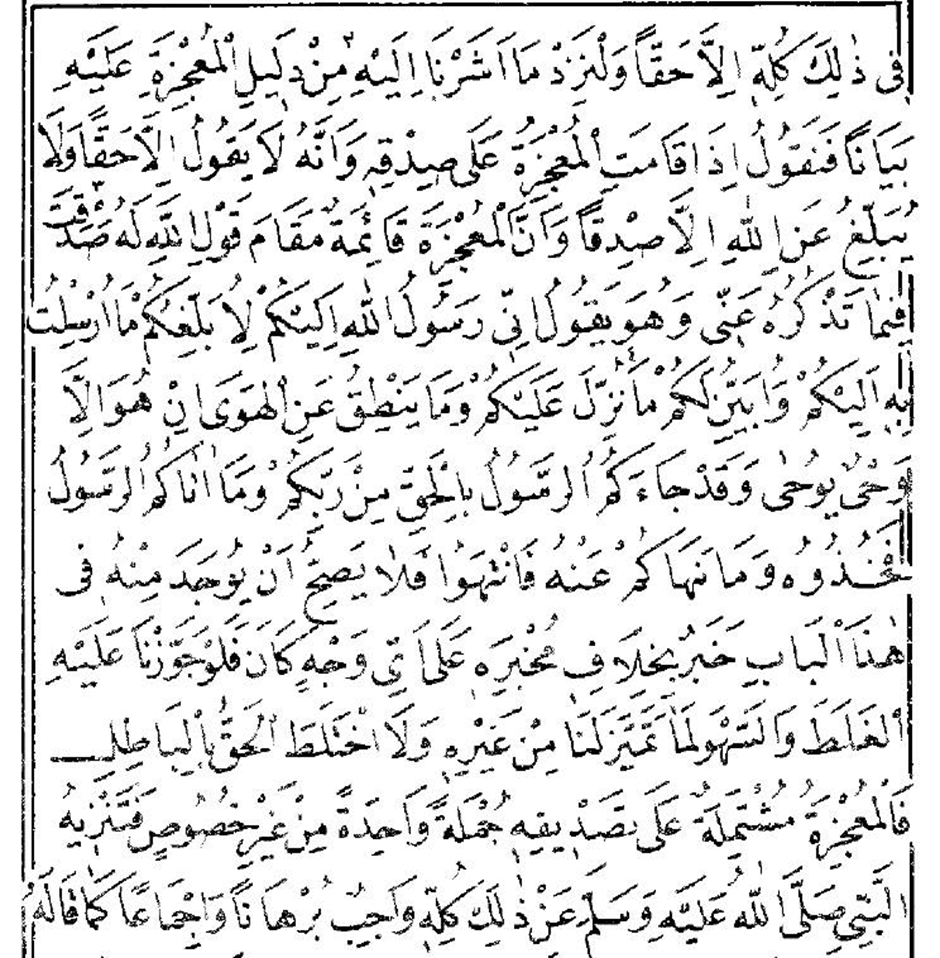 فِى ذٰلِكَ كُلِّهِ اِلَّا حَقًّا وَلْنَزِدْ مَا اَشَرْنَا اِلَيْهِ مِنْ دَلِيلِ الْمُعْجِزَةِ عَلَيْهِ
بَيَانًا فَنَقُولُ اِذَا قَامَتِ الْمُعْجِزَةُ عَلَى صِدْقِهِ وَاَنَّهُ لَا يَقُولُ اِلَّا حَقًّا وَلَا
يُبَلِّغُ عَنِ اللّٰهِ اِلَّا صِدْقًا وَاَنَّ الْمُعْجِزَةَ قَائِمَةٌ مَقَامَ قَوْلِ اللّٰهِ لَهُ صَدَقْتَ
فِيمَا تَذْكُرُهُ عَنِّى وَهُوَ يَقُولُ اِنِّى رَسُولُ اللّٰهِ اِلَيْكُمْ لِاُبَلِّغَكُمْ مَا اُرْسِلْتُ
بِهِ اِلَيْكُمْ وَاُبَيِّنَ لَكُمْ مَا نُزِّلَ عَلَيْكُمْ وَمَا يَنْطِقُ عَنِ الْهَوَى اِنْ هُوَ اِلَّا
وَحْىٌ يُوحٰى وَقَدْ جَاءَكُمُ الرَّسُولُ بِالْحَقِّ مِنْ رَبِّكُمْ وَمَا اٰتَاكُمُ الرَّسُولُ
فَخُذُوهُ وَمَا نَهَاكُمْ عَنْهُ فَانْتَهُوا فَلَا يَصِحُّ اَنْ يُوجَدَ مِنْهُ فِى
هٰذَا الْبَابِ خَبَرٌ بِخِلَافِ مُخْبَرِهِ عَلَى اَىِّ وَجْهٍ كَانَ فَلَوْ جَوَّزْنَا عَلَيْهِ
الْغَلَطَ وَالسَّهْوَ لَمَا تَمَيَّزَ لَنَا مِنْ غَيْرِهِ وَلَا اخْتَلَطَ الْحَقُّ بِالْبَاطِلِ
فَالْمُعْجِزَةُ مُشْتَمِلَةٌ عَلَى تَصْدِيقِهِ جُمْلَةً وَاحِدَةً مِنْ غَيْرِ خُصُوصٍ فَتَنْزِيهُ
النَّبِىِّ صَلَّى اللّٰهُ عَلَيْهِ وَسَلَّمَ عَنْ ذٰلِكَ كُلِّهِ وَاجِبٌ بُرْهَانًا وَاِجْمَاعًا كَمَا قَالَهُ